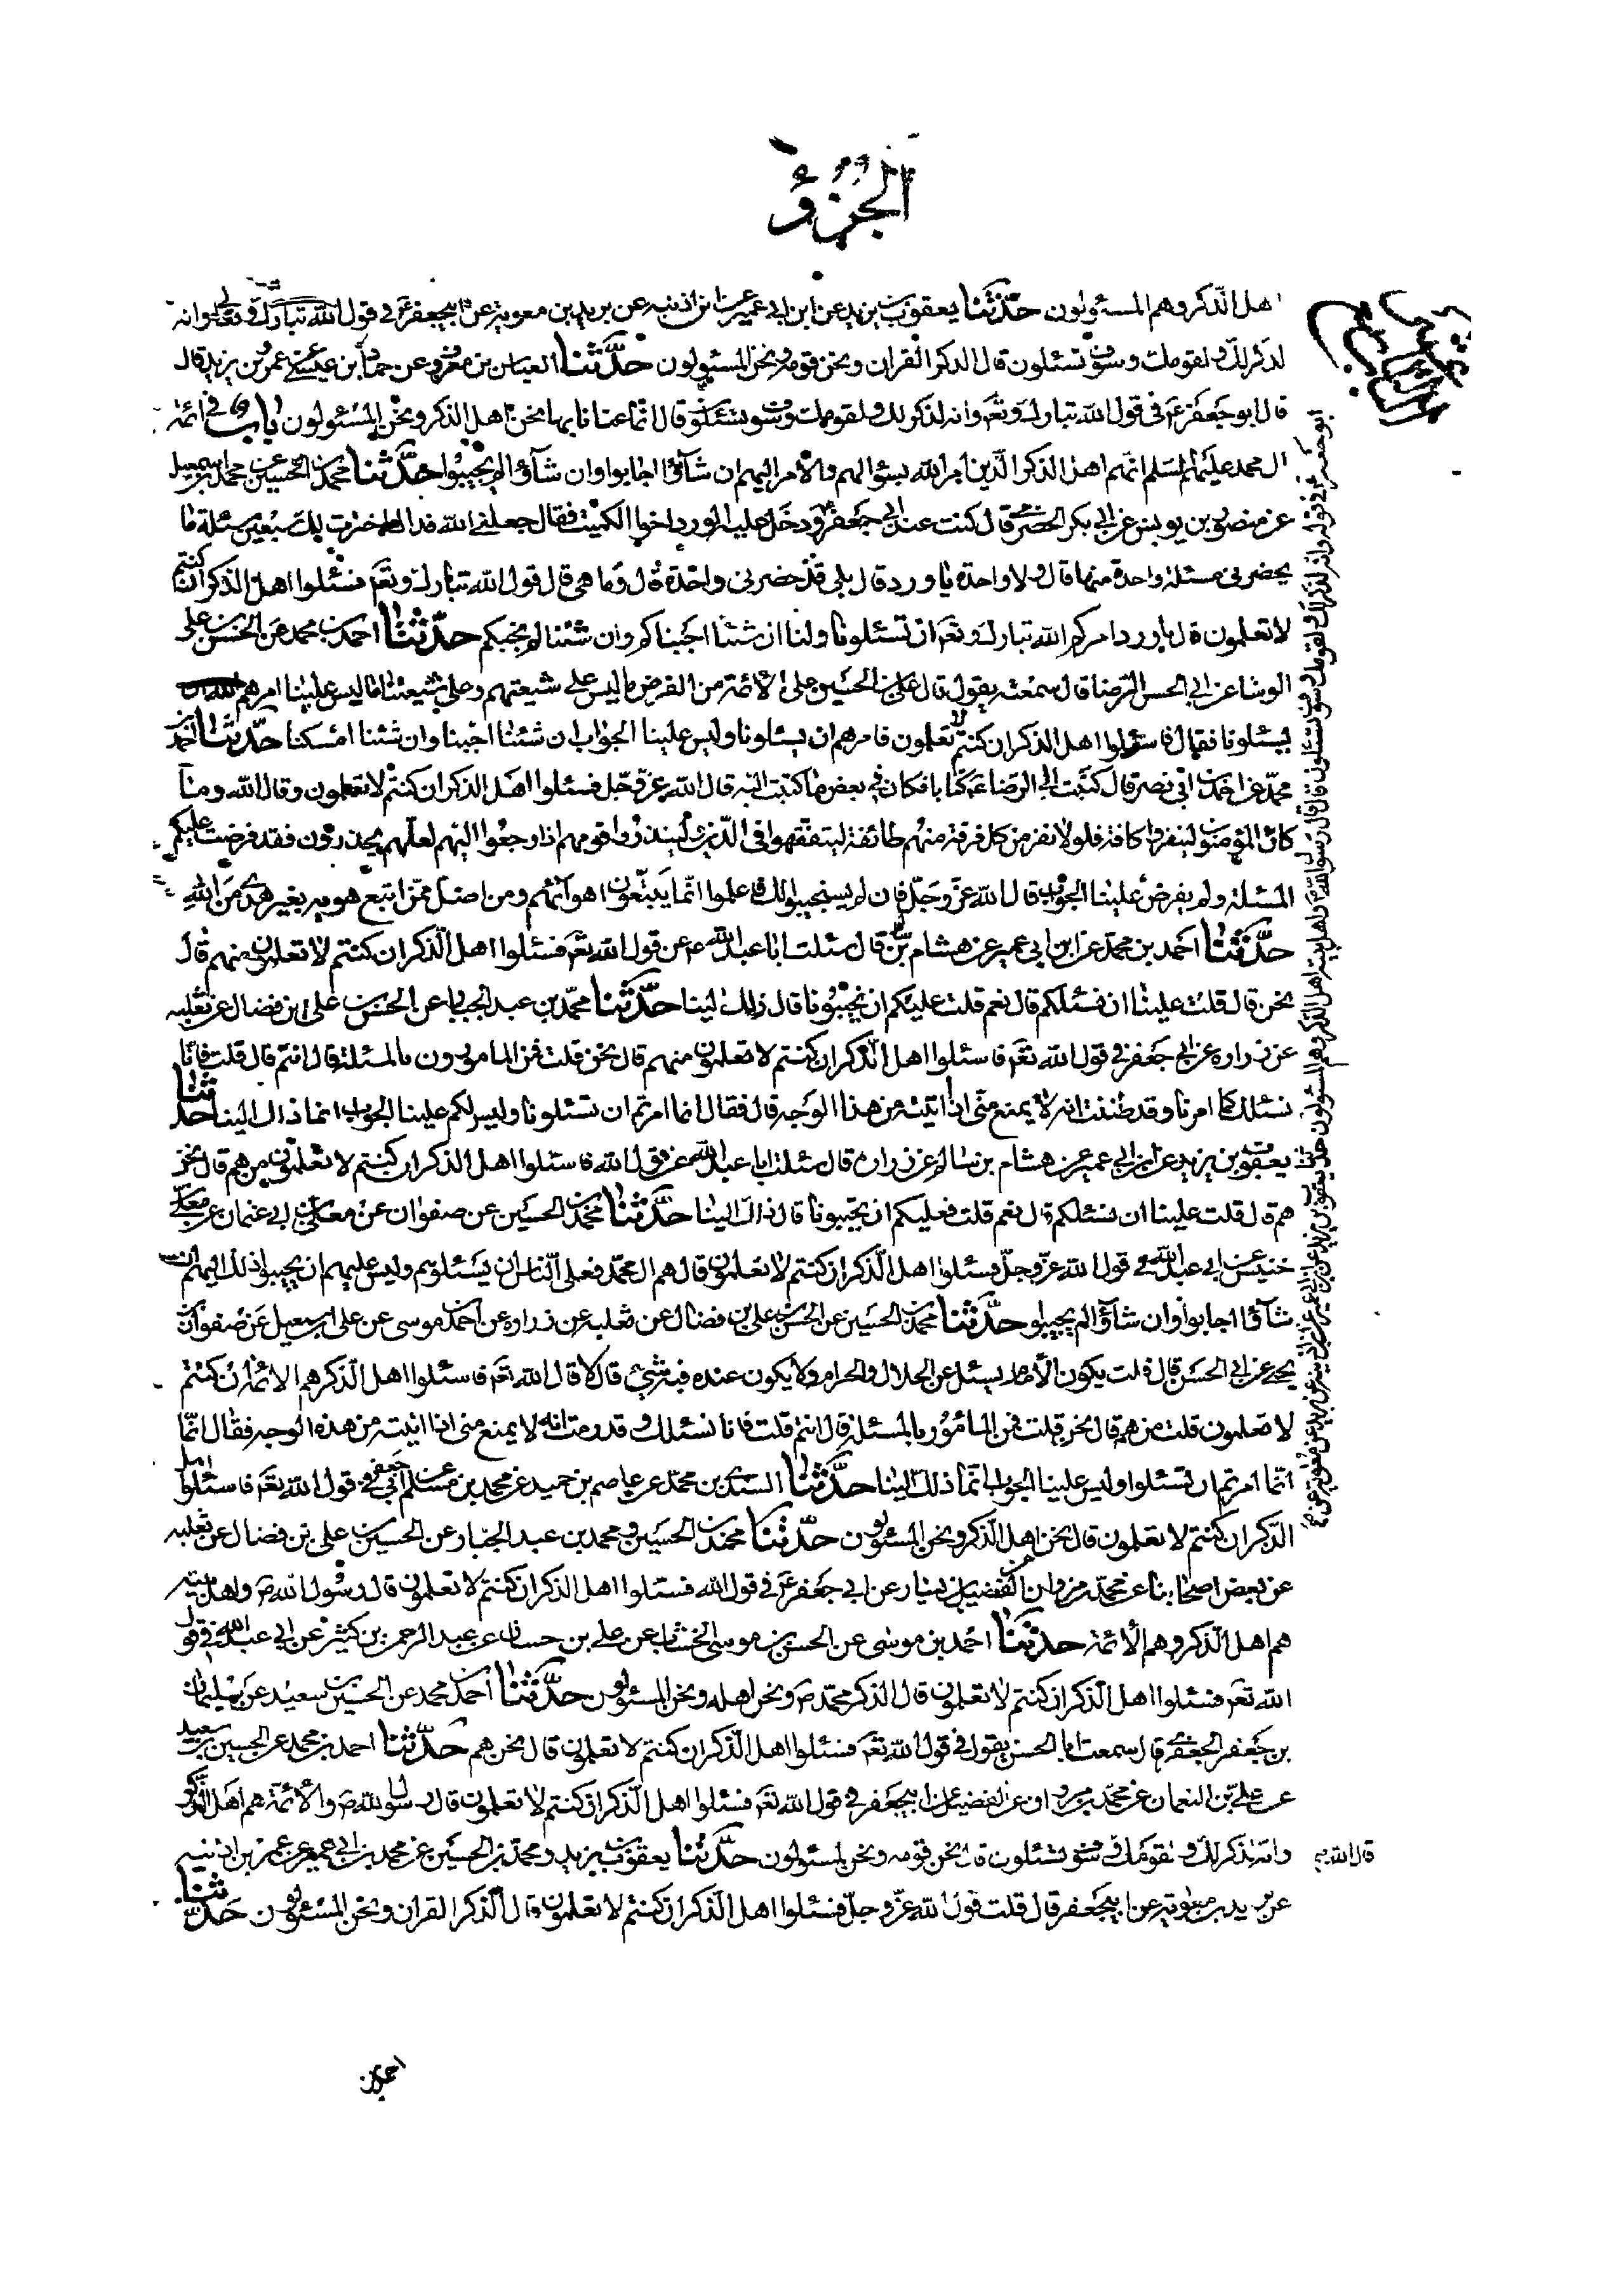 الجزؤ
اهل الذكر وهم المسئولون حدثنا يعقوب بن يزيد عن ابن ابي عمير عن ابن اذينه عن بريد بن معوية عن ابيجعفر ع في قول الله تبارك وتعالى وانه
لذكر لك ولقومك وسوف تسئلون قال الذكر القران ونحن قومه ونحن المسئولون حدثنا العباس بن معروف عن حماد بن عيسى عن عمر بن يزيد قال
قال ابو جعفر ع في قول الله تبارك وتعه وانه لذكر لك ولقومك وسوف تسئلون قال انما عنانا بها نحن اهل الذكر ونحن المسئولون باب في ائمة
ال محمد عليهم السلم انهم اهل الذكر الذين امر الله بسئوالهم والامر اليهم ان شاؤا اجابوا وان شاؤا لم يجيبوا حدثنا محمد بن الحسين عن محمد بن اسمعيل
عن منصور بن يونس عن ابي بكر الحضرمي قال كنت عند ابي جعفر ع ودخل عليه الورد اخوا الكميت فقال جعلني الله فداك اخترت لك سبعين مسئلة ما
يحضرني مسئلة واحدة منها قال ولا واحدة يا ورد قال بلى قد حضرني واحدة قال وما هي قال قول الله تبارك وتعه فسئلوا اهل الذكر ان كنتم
لا تعلمون قال يا ورد امركم الله تبارك وتعه ان تسئلونا ولنا ان شئنا اجبناكم وان شئنا لم نجبكم حدثنا احمد بن محمد عن الحسن بن علي
الوشا عن ابي الحسن الرضا قال سمعته يقول قال علي بن الحسين على الائمة من الفرض ما ليس على شيعتهم وعلى شيعتنا ما ليس علينا امرهم الله ان
يسئلونا فقال فاسئلوا اهل الذكر ان كنتم لا تعلمون فامرهم ان يسئلونا وليس علينا الجواب ان شئنا اجبنا وان شئنا امسكنا حدثنا احمد بن
محمد عن احمد بن ابي نصر قال كتبت الى الرضا ع كتابا فكان في بعض ما كتبت اليه قال الله عز وجل فسئلوا اهل الذكر ان كنتم لا تعلمون وقال الله وما
كان المؤمنون لينفروا كافة فلولا نفر من كل فرقة منهم طائفة ليتفقهوا في الدين ولينذروا قومهم اذا رجعوا اليهم لعلهم يحذرون فقد فرضت عليكم
المسئلة ولم يفرض علينا الجواب قال الله عز وجل فان لم يستجيبوا لك فاعلموا انما يتبعون اهوائهم ومن اضل ممن اتبع هويه بغير هدى من الله
حدثنا احمد بن محمد عن ابن ابي عمير عن هشام بن قال سئلت ابا عبد الله ع عن قول الله تعه فسئلوا اهل الذكر ان كنتم لا تعلمون من هم قال
نحن قال قلت علينا ان نسئلكم قال نعم قلت عليكم ان تجيبونا قال ذلك الينا حدثنا محمد بن عبد الجبار عن الحسن بن علي بن فضال عن ثعلبه
عن زراره عن ابي جعفر في قول الله تعه فاسئلوا اهل الذكر ان كنتم لا تعلمون منهم قال نحن قلت فمن المامورون بالمسئلة قال انتم قال قلت فانا
نسئلك كما امرنا وقد ظننت انه لا يمنع مني اذا اتيته من هذا الوجه قال فقال انما امرتم ان تسئلونا وليس لكم علينا الجواب انما ذاك الينا حدثنا
يعقوب بن يزيد عن ابن ابي عمير عن هشام بن سالم عن زراره قال سئلت ابا عبد الله عن قول الله فاسئلوا اهل الذكر ان كنتم لا تعلمون من هم قال نحن
هم قال قلت علينا ان نسئلكم قال نعم قلت فعليكم ان تجيبونا قال ذاك الينا حدثنا محمد بن الحسين عن صفوان عن معلى بن ابي عثمان عن معلى بن
خنيس عن ابي عبد الله في قول الله عز وجل فسئلوا اهل الذكر ان كنتم لا تعلمون قال هم ال محمد فعلى الناس ان يسئلوهم وليس عليهم ان يجيبوا ذلك اليهم ان
شاؤا اجابوا وان شاؤا لم يجيبوا حدثنا محمد بن الحسين عن الحسن بن علي بن فضال عن ثعلبه عن زراره عن احمد بن موسى عن علي بن اسمعيل عن صفوان بن
يحيى عن ابي الحسن قال قلت يكون الامام يسئل عن الحلال والحرام ولا يكون عنده فيه شئ قال لا قال الله تعه فاسئلوا اهل الذكر هم الائمة ان كنتم
لا تعلمون قلت من هم قال نحن قلت فمن المامور بالمسئلة قال انتم قلت فانا نسئلك وقد رمت انه لا يمنع مني اذا اتيته من هذه الوجه فقال انما
انما امرتم ان تسئلوا وليس علينا الجواب انما ذلك الينا حدثنا السندي بن محمد عن عاصم بن حميد عن محمد بن مسلم عن ابي جعفر في قول الله تعه فاسئلوا اهل
الذكر ان كنتم لا تعلمون قال نحن اهل الذكر ونحن المسئولون حدثنا محمد بن الحسين ومحمد بن عبد الجبار عن الحسين بن علي بن فضال عن ثعلبه
عن بعض اصحابنا عن محمد بن مروان عن الفضيل بن يسار عن ابي جعفر ع في قول الله فسئلوا اهل الذكر ان كنتم لا تعلمون قال رسول الله ص واهل بيته
هم اهل الذكر وهم الائمة حدثنا احمد بن موسى عن الحسن بن موسى الخشاب عن علي بن حسان عن عبد الرحمن بن كثير عن ابي عبد الله في قول
الله تعه فسئلوا اهل الذكر ان كنتم لا تعلمون قال الذكر محمد ص ونحن اهله ونحن المسئولون حدثنا احمد بن محمد عن الحسين بن سعيد عن سليمان
بن جعفر الجعفري قال سمعت ابا الحسن يقول في قول الله تعه فسئلوا اهل الذكر ان كنتم لا تعلمون قال نحن هم حدثنا احمد بن محمد عن الحسين بن سعيد
عن علي بن النعمان عن محمد بن مروان عن الفضيل عن ابيجعفر في قول الله تعه فسئلوا اهل الذكر ان كنتم لا تعلمون قال رسول الله ص والائمة هم اهل الذكر
قال الله وانه لذكر لك ولقومك وسوف تسئلون قال نحن قومه ونحن المسئولون حدثنا يعقوب بن يزيد ومحمد بن الحسين عن محمد بن ابي عمير عن عمر بن اذينه
عن بريد بن معوية عن ابيجعفر قال قلت قول الله عز وجل فسئلوا اهل الذكر ان كنتم لا تعلمون قال الذكر القران ونحن المسئولون حدثنا
ابو جعفر ع في قوله وانه لذكر لك ولقومك وسوف تسئلون قال قال رسول الله ص واهل بيته اهل الذكر وهم المسئولون حدثنا يعقوب بن يزيد عن ابن ابي عمير عن ابن اذينه عن بريد بن معوية عن